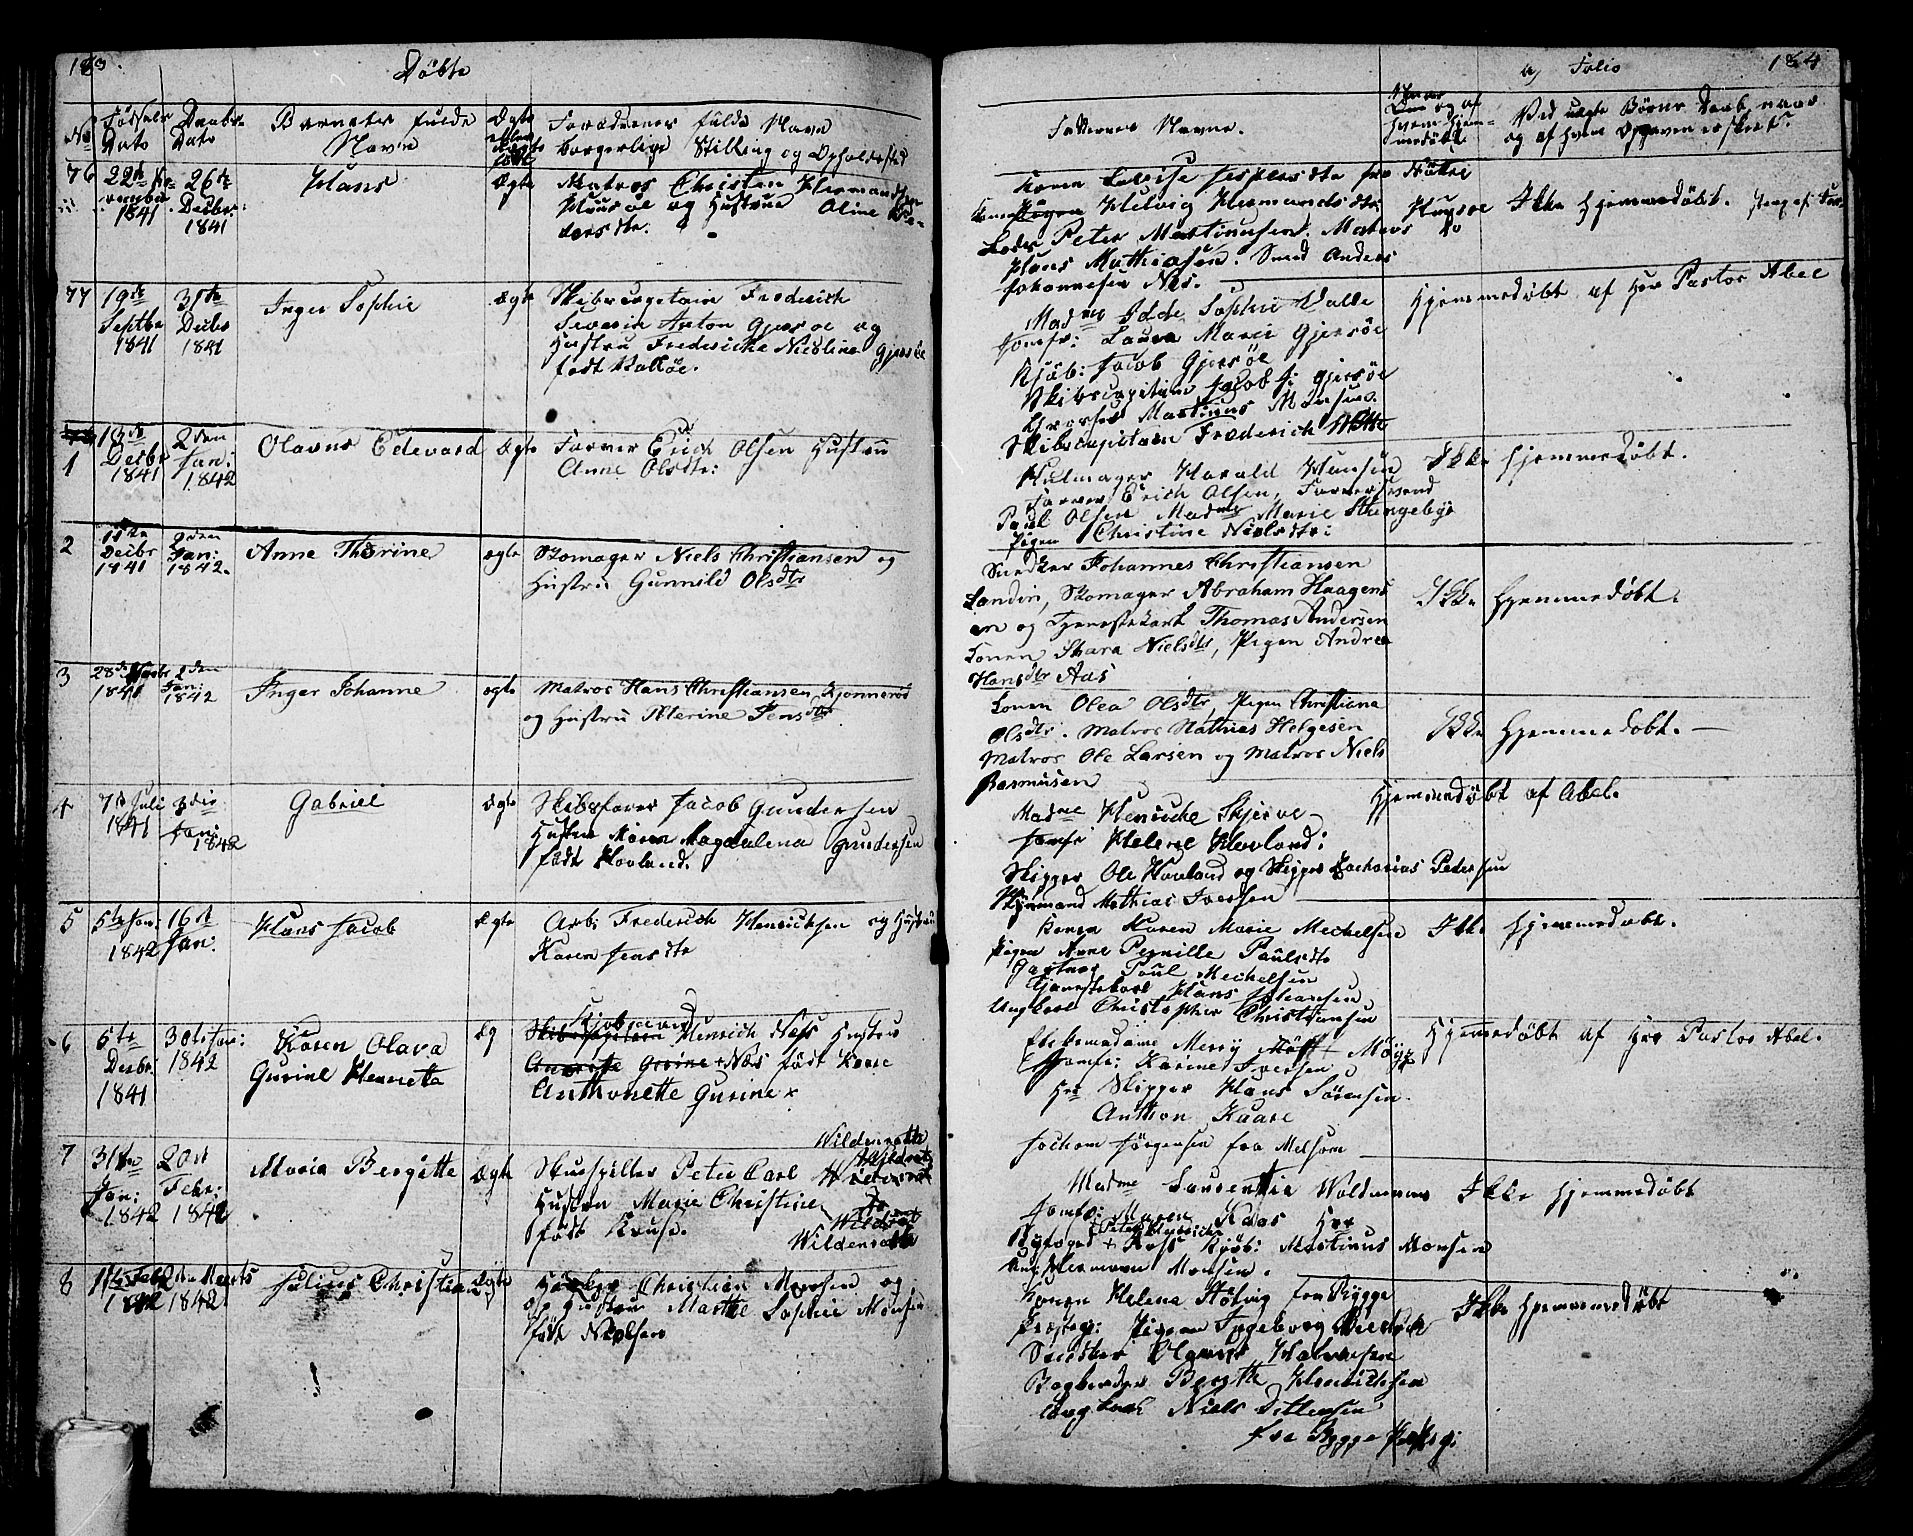 183.
Døbte
No
Fødsels Dato
Daabs Dato
Barnets fulde Navn
Ægte eller uægte født
Forældrenes fulde Navn
borgerlige Stilling og Opholdssted
76
22de November 1841
26de Decbr: 1841
Hans
Ægte
Matros Christen Hermandsen
Huusøe og Hustrue Oline
dersdtr.
77
19de Septbr 1841
31te Decbr 1841
Inger Sophie
Ægte
Skibscapitain Frederich
Severin Anton Gjersøe og
Hustru Fredericke Nicoline Gjersøe
født Balløe.
1
13de Decbr 1841
2den Jan: 1842
Olavus Edevard
Ægte
Farver Erich Olsen Hustru
Anne Olsdtr:
2
Decbr 1841
2den Jan: 1842.
Anne Thorine
ægte
Skomager Niels Christiansen og
Hustru Gunnild Olsdtr
3
28de Novbr 1841
2den Jan: 1842
Inger Johanne
ægte
Matros Hans Christiansen, Kjonnerød
og Hustru Therine Jensdtr
4
7de Juli 1841
3die Jan: 1842
Gabriel
Ægte
Skibsfører Jacob Gundersen
Hustru Maren Magdalena Gundersen
født Hovland.
5
5te Jan: 1842
16de Jan.
Hans Jacob
Ægte
Arb: Frederich Henricksen og Hustru
Karen Jensdtr
6
5te Decbr. 1841
30te Jan: 1842
Karen Olava
Gurine Henneta
Æg
Kjøbmand
Skibscapitain Henrich Næss Hustru
Gurine + Næs født Kaare
Anthonette Gurine x
7
31te Jan: 1842
20de Febr: 1842
Maria Bergitte
Ægte
Wildenrath
Skuespiller Peter Carl
Hustru Marie Christine
født Kruse.
Wildenrath
8
Febr 1842
Marts 1842
Julius Christian
Ægte
Christian Monsen og
Hustrue Marthe Sophie Monsen
født Nielsen
184
Folio
Faddernes Navne.
Naar Døbt og af hvem hjemmedøbt
Ved uægte Børns Daab, naar
og af hvem Opgaven er skeet.
Konen Lovise Jespersdtr fra Nøtte
Helvig Hermundsdtr Huusøe
Lods Peter Martinusen. Matros do
Hans Mathiasen. Smed Anders
Johannesen Næs.
Ikke hjemmedøbt.
Madme Idde Sophie Balle
Jomfr: Laura Marie Gjersøe
Kjøb: Jacob Gjersøe
Skibscapitain Jacob J: Gjersøe
Martinus Monsen.
Skibscapitain Frederich
Hjemmedøbt af Hrr Pastor Abel
Hulmager Harald Hansen
Farver Erich Olsen, Farversvend
Paul Olsen Madme Marie Strengebye
Pigen Christine Nielsdtr:
Ikke hjemmedøbt.
Snedker Johannes Christiansen
Landin, Skomager Abraham Haagens
en og Tjenestekarl Thomas Andersen
Konen Shara Nielsdtr, Pigen Andrea
Hansdtr Aas
Ikke hjemmedøbt.
Konen Olea Olsdtr, Pigen Christiane
Olsdtr. Matros Mathias Helgesen
Matros Ole Larsen og Matros Niels
Rasmusen
Ikke hjemmedøbt. —
Madme Henricke Skjerve
Jomfr Helene Hovland:
Skipper Ole Hovland og Skipper Zacharias Pedersen
Styrmand Mathias Iversen
Hjemmedøbt af Abel.
Konen Karen Marie Mechelsen
Pigen Anne Pernille Paulsdtr
Gartner Paul Mechelsen
Tjenestekarl Hans Johansen
Ungkarl Christopher Christiansen
Ikke hjemmedøbt.
Enkemadame Merry Møyg
Jomfr: Karine Iversen
Hrr Skipper Hans Sørensen.
Anthon Kaare
Jochom Jørgensen fra Melsom
Hjemmedøbt af Hrr Pastor Abel.
Madme Laurentia Woldmanns
Jomfr: Maren Kaas Hrr
Byfoged + Peter Henrich Ross Kjøb: Martinus Monsen
Ung: Hermann Monsen.
Ikke hjemmedøbt
Konen Helena Støtvig fra Rygge
Præstegj: Pigen Ingeborg
Snedker Halvorsen
Bagersvend Bergth Henricksen
Ungkarl Niels Ditlevsen
fra Rygge Præstegj:
Ikke hjemmedøbt